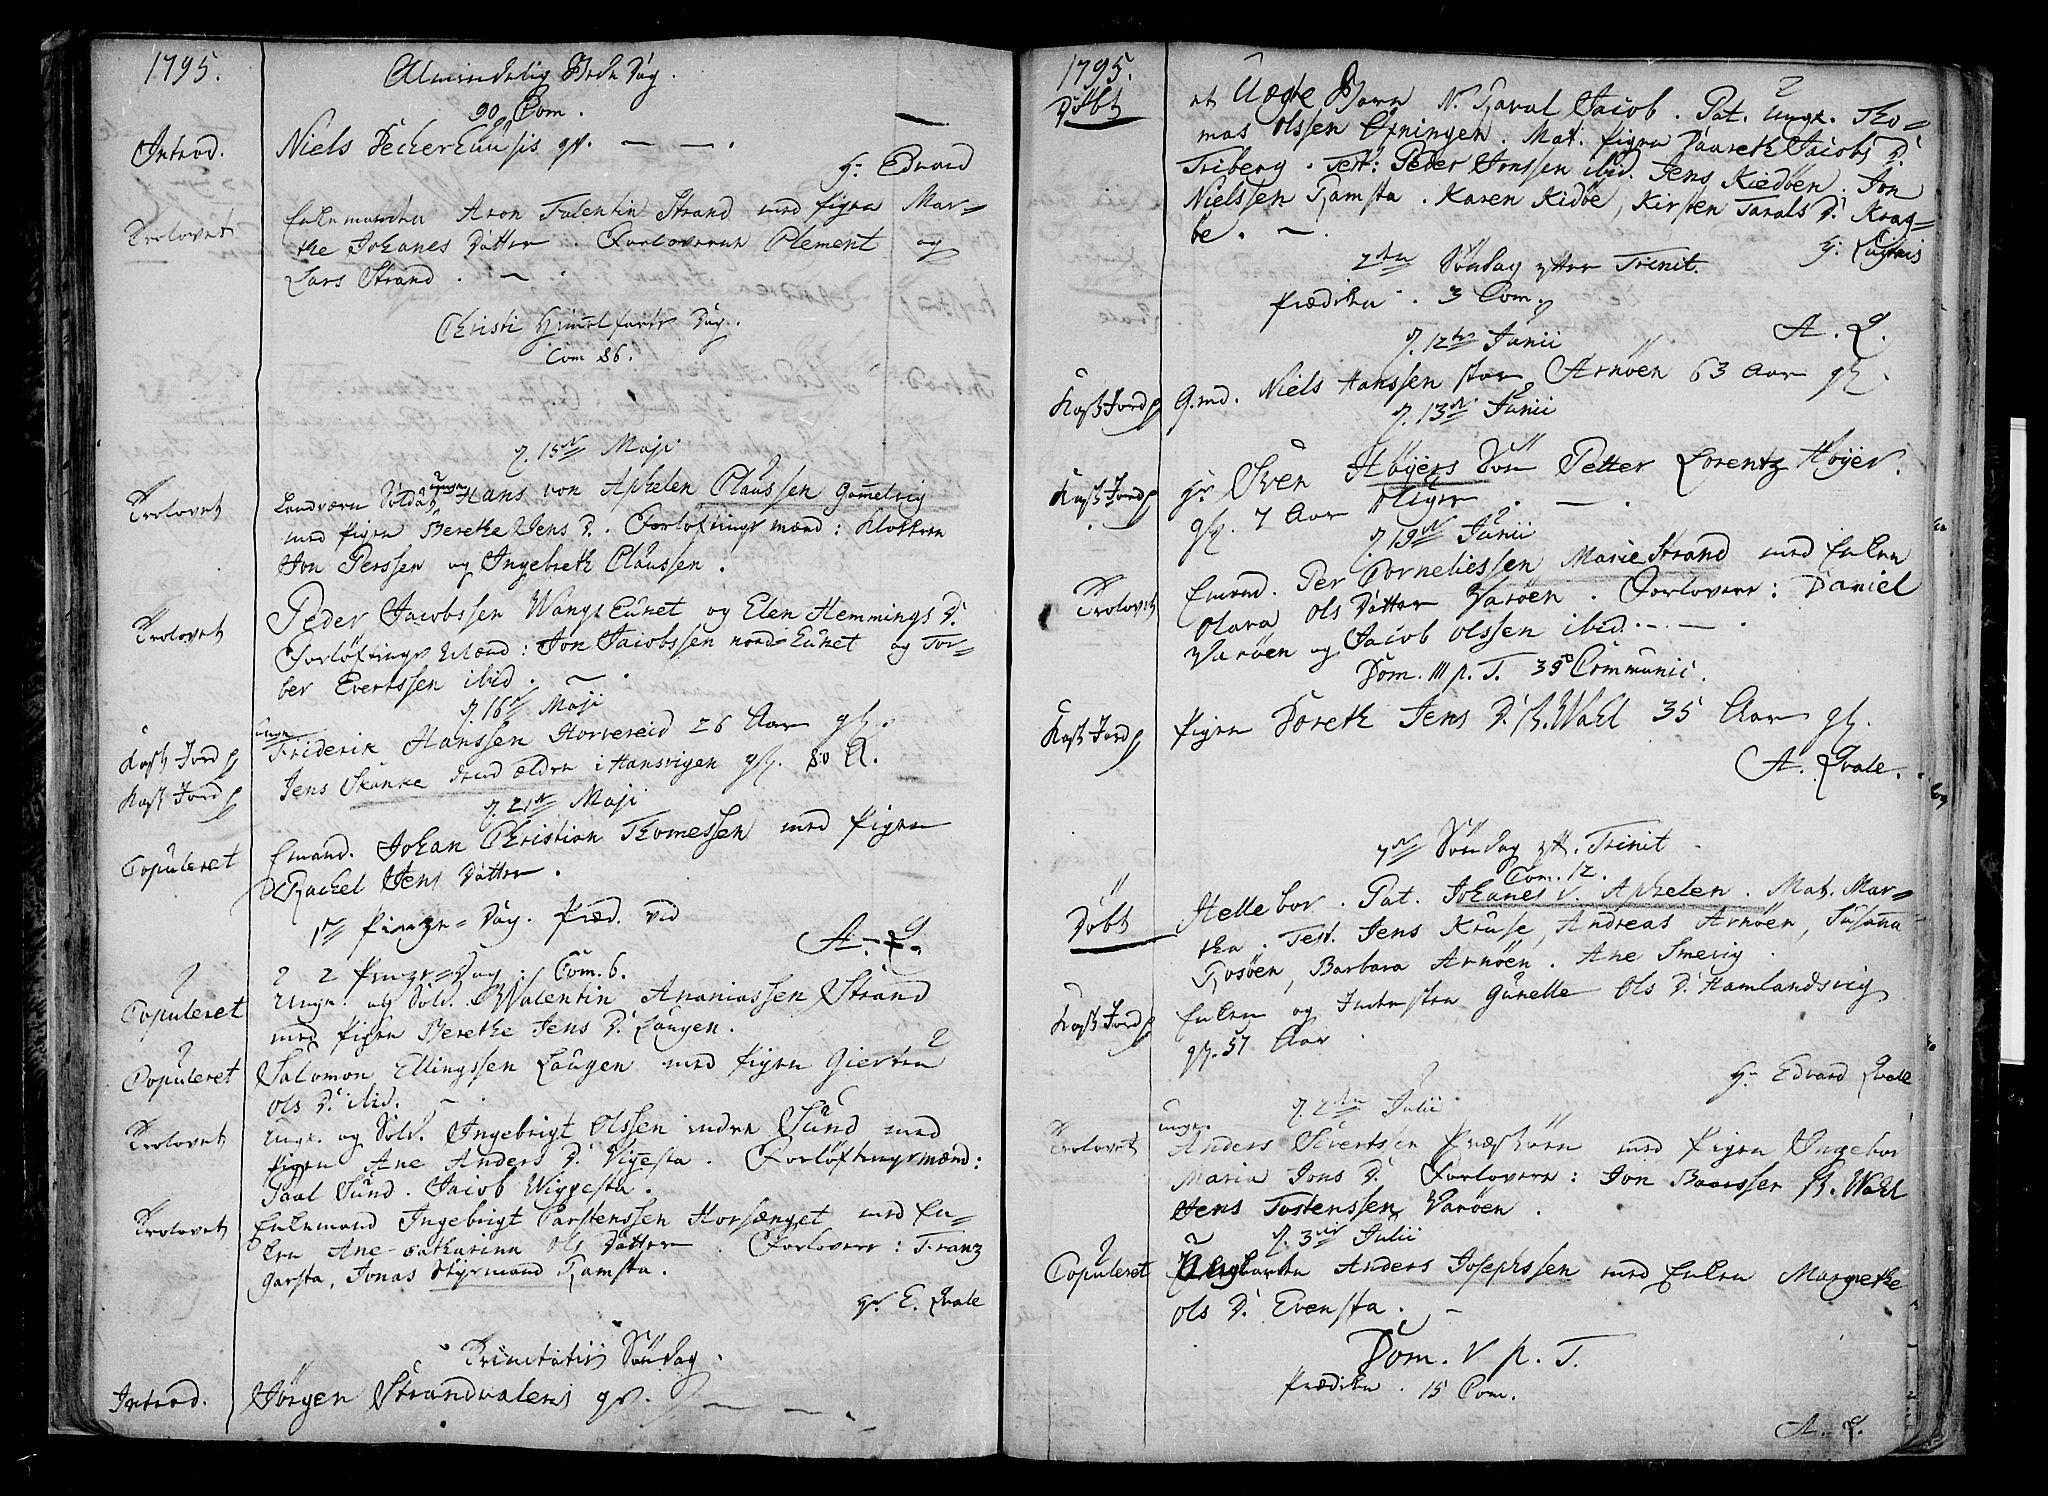 1795.
Almindelig Bede Dag.
90 Com.
Introd. Niels Deckerhuusis qv. — — .
Hr. Edvard
Trolovet Enkemanden Aron Falentin Strand med Pigen Mar=
the Johanes Datter . Forloverne Clement og
Lars Strand . — .
Christi Himelfarts Dag.
Com 86.
d. 15de Maji
Trolovet Landværn Soldat ungk. Hans von Aphelen Claussen Gamelvig
med Pigen Berethe Jens D. Forløftings mænd : Klokkeren
Jon Perssen og Ingebreth Claussen .
Trolovet Peder Jacobssen Wangs Eunet og Elen Hemmings D.
Forløftings Mænd : Jon Jacobssen nord Eunet og Tor=
ber Evertssen ibid . — .
d. 16de Maji
Kast Jord p ungk. Friderik Hanssen Horvereid 26 Aar gl.
Kast Jord p Jens Skanke den ældre i Hansvigen gl. 80 A.
d. 21de Maji
Copuleret Emand. Johan Christian Thomessen med Pigen
Rachel Jens Datter .
1ste Pintze=Dag. Præd. ved
A. Q.
2 Pintze=Dag . Com. 6.
Copuleret Ungk. og Sold. Walentin Ananiassen Strand
med Pigen Berethe Jens D. Laugen .
Copuleret Salomon Ellingssen Laugen med Pigen Giertru
Ols D. ibid. — .
Trolovet Ungk. og Sold. Ingebrigt Olssen indre Sund med
Pigen Ane Anders D. Vigesta . Forløftingsmænd :
Paal Sund . Jacob Wiggesta .
Trolovet Enkemand Ingebrigt Carstenssen Horsænget med En=
ken Ane Catharina Ols Datter . Forlovere : Franz
Garsta, Jonas Styrmand Ramsta .
Hr E. Qvale
Trinitatis Søndag .
Introd. Jörgen Strandvalens qv. — — .
1795.
Döbt et Uægte Barn N. Haval Jacob . Pat. Ungk. Tho=
mas Olssen Øxningen . Mat: Pigen Daareth Jacobs D.
Friberg . Test: Peder Jonssen ibid. Jens Kiedøen . Jon
Nielssen Ramsta . Karen Kidöe, Kirsten Tarals D. Krag=
öe . — .
2den Söndag efter Trinit.
Prædiken . 3 Com.
A. Q.
d. 12te Junii
Kast Jord p G.md. Niels Hanssen stor Arnöen 63 Aar gl .
d. 13de Junii
Kast Jord p Hr Sven Höyers Sön Petter Lorentz Höyer.
gl. 7 Aar . — .
d. 19de Junii
Trolovet Emand. Per Corneliessen Marie Strand med Enken
Olara Ols Datter Varöen . Forlovere : Daniel
Varöen og Jacob Olssen ibid. — .
Dom. III p. T. 39 Communic .
Kast Jord p Pigen Doreth Jens D. R. Wahl 35 Aar gl.
A. Qvale .
Söndag eft. Trinit .
Com. 12.
Döbt Hellebor . Pat. Johanes v. Aphelen . Mat. Mar=
tha . Test. Jens Kruse, Andreas Arnöen, Susanna
Rosöen, Barbara Arnöen . Ane Smevig .
Kast Jord p Enken og Inderstæ Gunelle Ols D. Hamlandsvig
gl. 57 Aar .
Hr Edvard Qvale
d. 2den Julii
Trolovet ungk. Anders Sivertsen Præstöen med Pigen Ingebor
Maria Jons D. Forlovere : Jon Baarssen R. Wahl
Jens Tostenssen Varöen .
d. 3die Julii
Copuleret Anders Josephssen med Enken Margrethe
Ols D. Evensta . —
Dom. V p. T.
Prædiken . 15 Com.
A. Q.